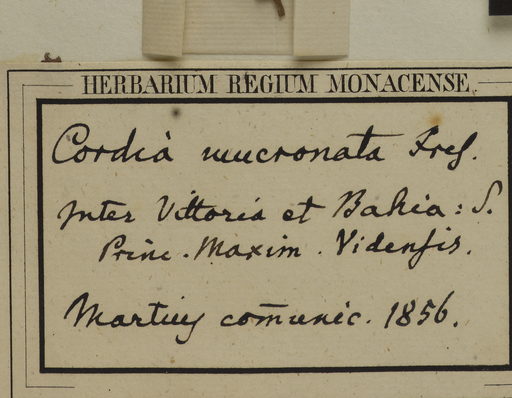 HERBARIUM REGIUM MONACENSE
Cordia mucronata Fres.
Inter Vittoria et Bahia: S.
Princ. Maxim. Videnſis.
Martius com̄unic. 1856.